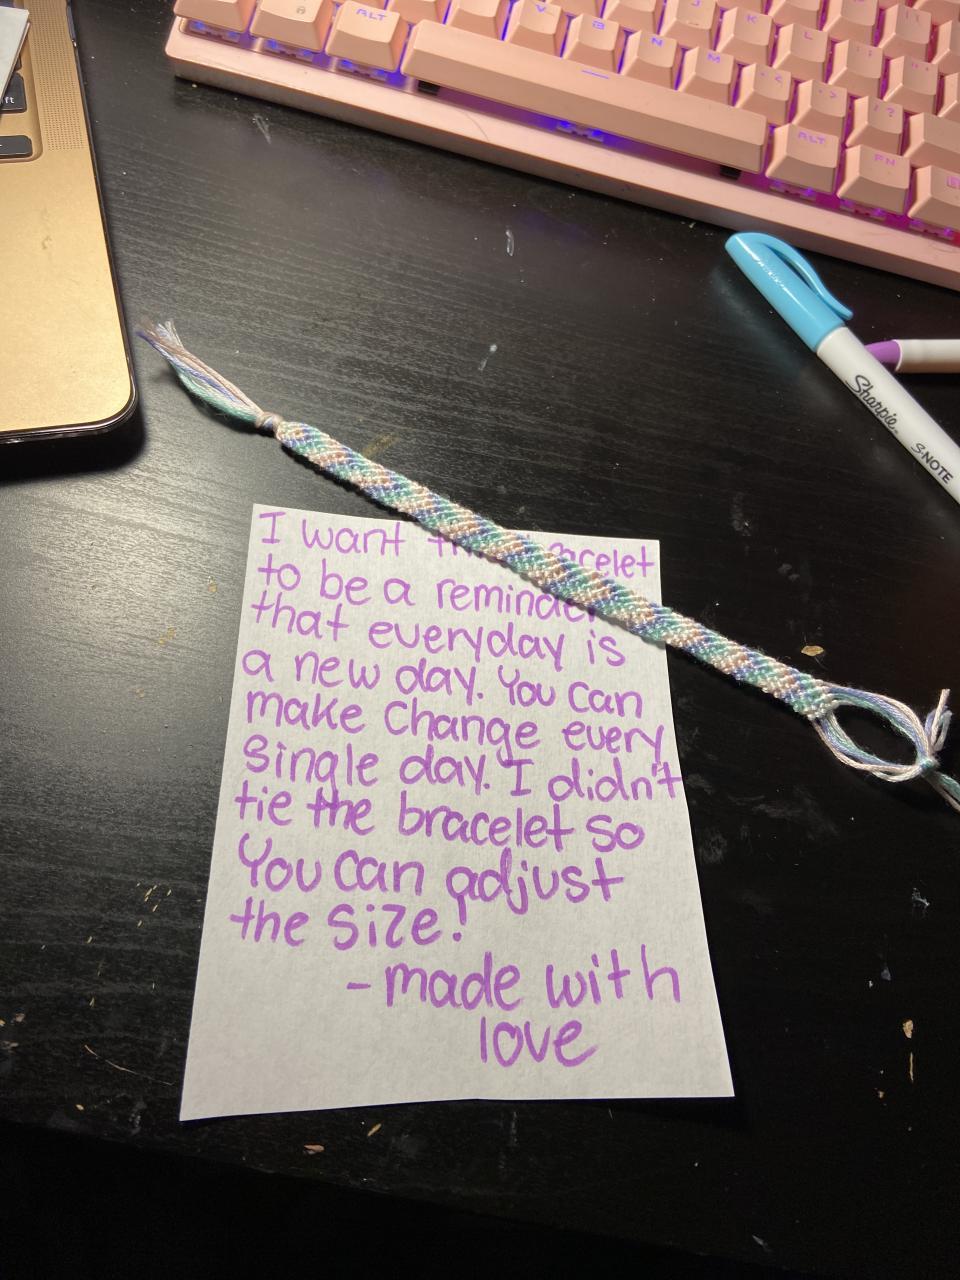 ALT
V
B
N
M
K
L
ALT
FN
Sharpie
S·NOTE
I want bracelet
to be a reminder
that everyday is
a new day. You can
make change every
single day. I didn't
tie the bracelet so
You can adjust
the size!
- made with
love